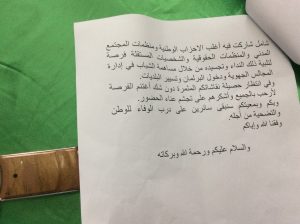 شامل شاركت فيه أغلب الاحزاب الوطنية ومنظمات المجتمع
المدني والمنظمات الحقوقية والشخصيات المستقلة فرصة
لتلبية ذلك النداء وتجسيده من خلال مساهمة الشباب في إدارة
المجالس الجهوية ودخول البرلمان وتسيير البلديات.
وفي انتظار حصيلة نقاشاتكم المثمرة دون شك أغتنم الفرصة
لأرحب بالجميع وأشكرهم على تجشم عناء الحضور.
وبكم وبمعيتكم سنبقى سائرين على درب الوفاء للوطن
والتضحية من أجله.
وفقنا الله وإياكم
والسلام عليكم ورحمة الله وبركاته